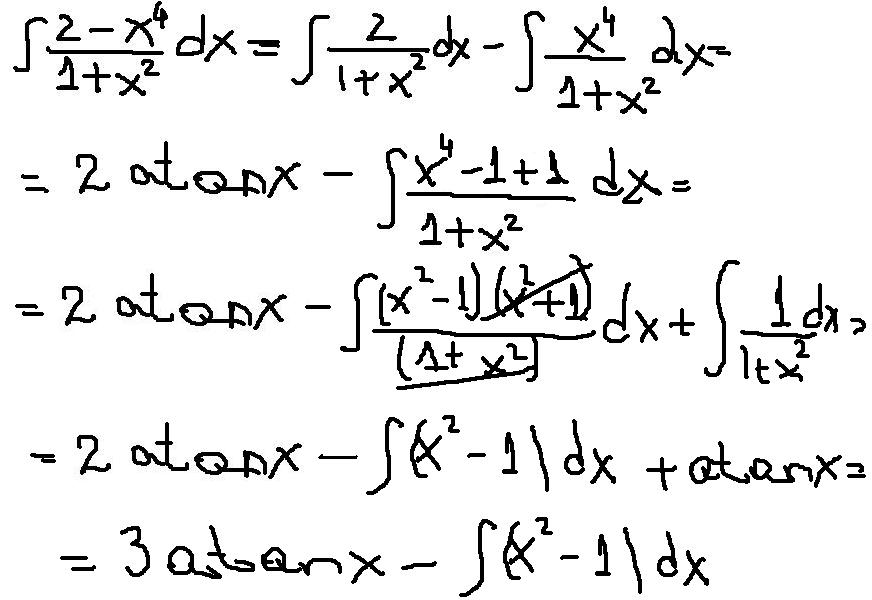 ∫ (2 - x⁴)/(1+x²) dx = ∫ 2/(1+x²) dx - ∫ x⁴/(1+x²) dx =
= 2 atanx - ∫ (x⁴-1+1)/(1+x²) dx =
= 2 atanx - ∫ (x²-1)(x²+1)/(1+x²) dx + ∫ 1/(1+x²) dx =
= 2 atanx - ∫(x²-1) dx + atanx =
= 3 atanx - ∫(x²-1) dx